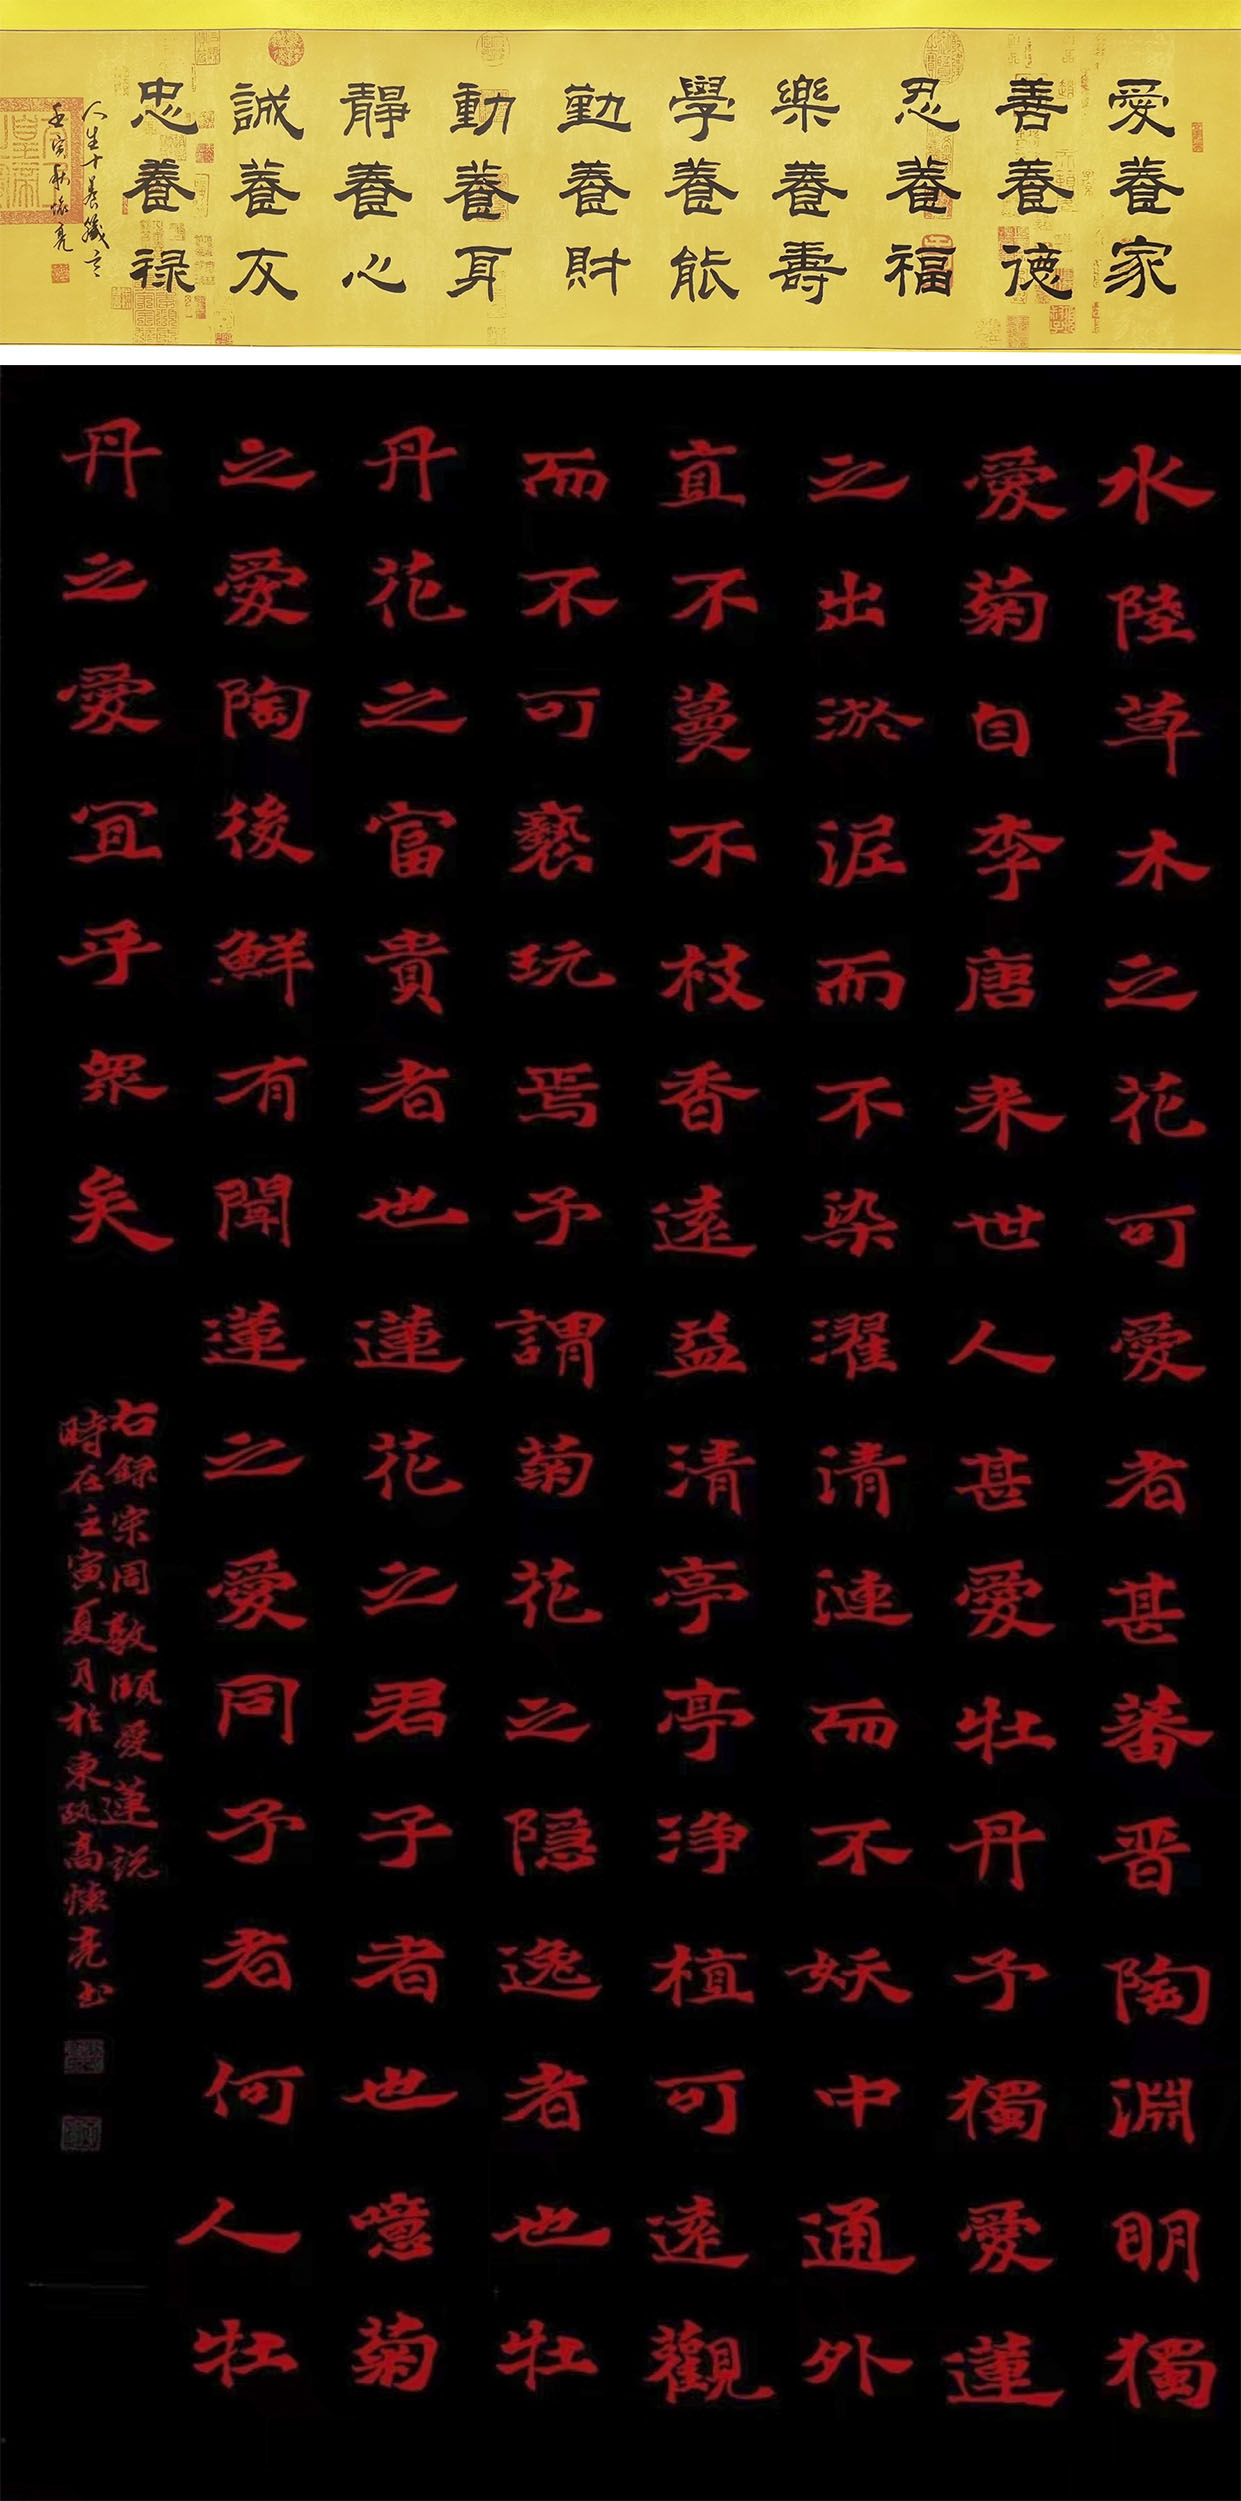 愛養家
善養德
忍養福
樂養壽
學養能
勤養財
動養耳
靜養心
誠養友
忠養禄
人生十養箴言
壬寅秋懷亮
水陸草木之花可愛者甚蕃晋陶淵明獨
愛菊自李唐来世人甚愛牡丹予獨愛蓮
之出淤泥而不染濯清漣而不妖中通外
直不蔓不枝香遠益清亭亭浄植可遠觀
而不可褻玩焉予謂菊花之隠逸者也牡
丹花之富貴者也蓮花之君子者也噫菊
之愛陶後鮮有聞蓮之愛同予者何人牡
丹之愛宜乎眾矣
右録宋周敦頤愛蓮説
時在壬寅夏月於東甌高懷亮书